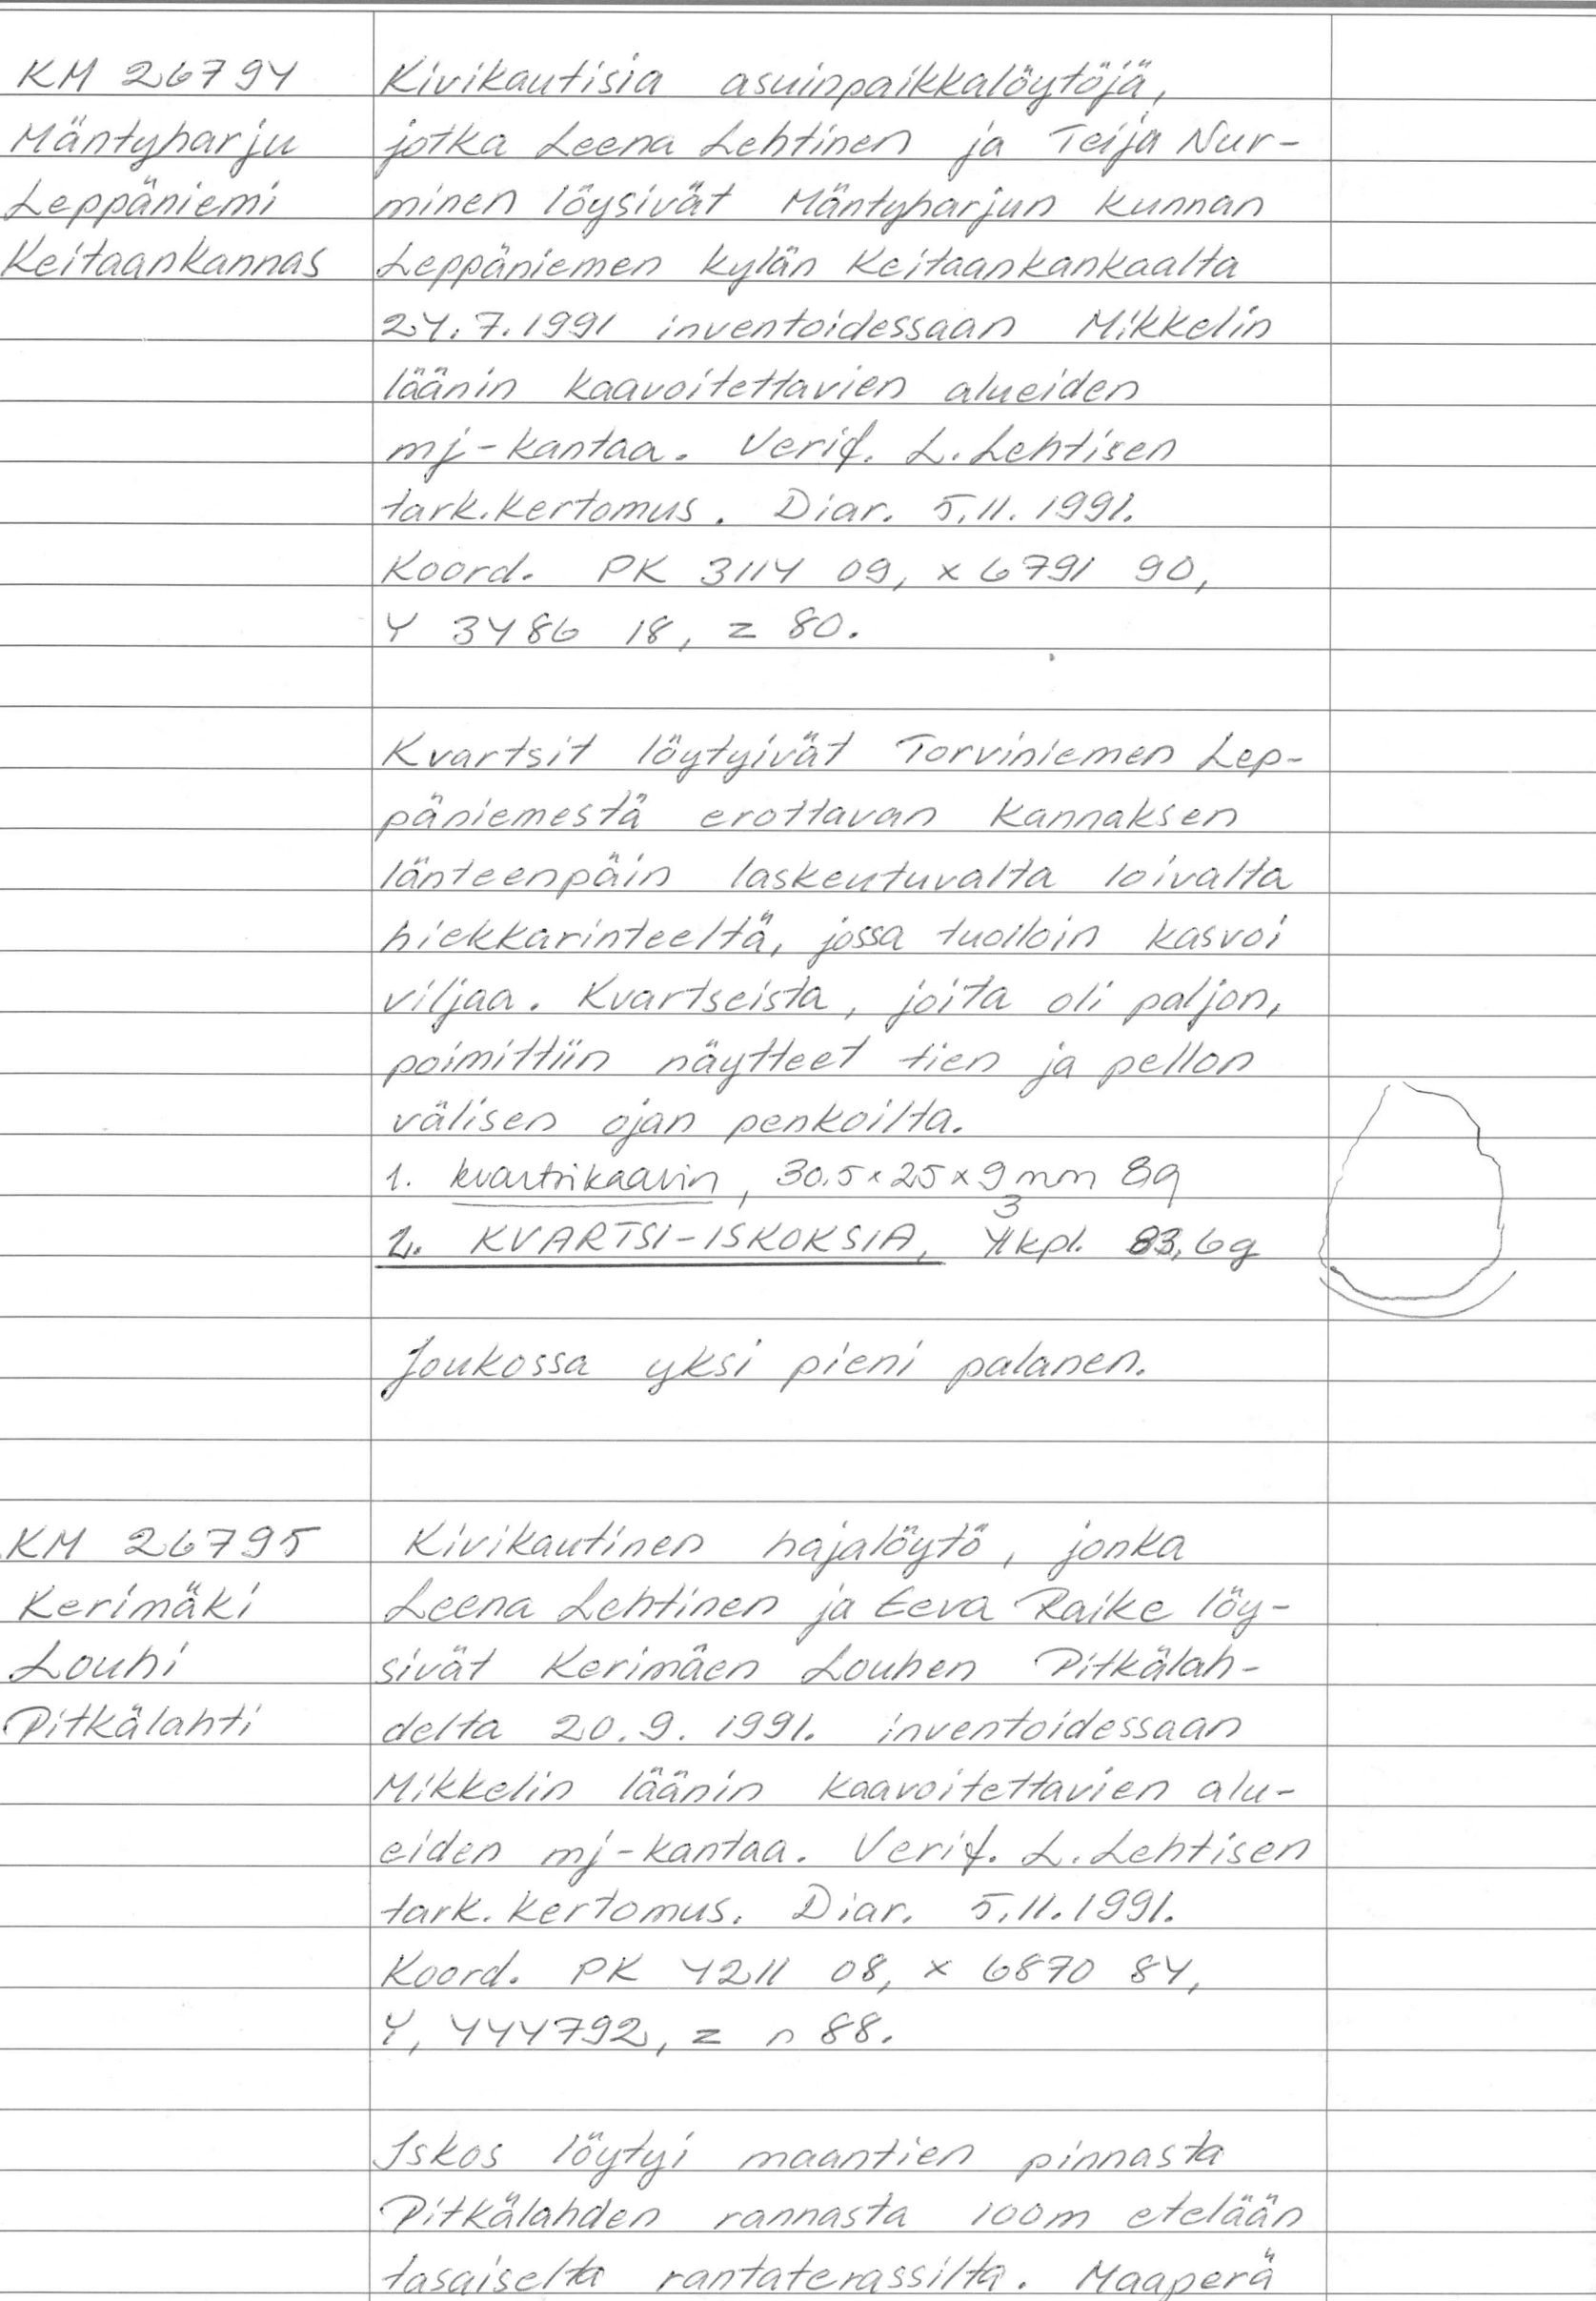 KM 26794
Mäntyharju
Leppäniemi
Keitaankannas
Kivikautisia asuinpaikkalöytöjä,
jotka Leena Lehtinen ja Teija Nur-
minen löysivät Mäntyharjun kunnan
Leppäniemen kylän Keitaankankaalta
24.7.1991 inventoidessaan Mikkelin
läänin kaavoitettavien alueiden
mj-kantaa. Verif. L. Lehtisen
tark.kertomus. Diar. 5.11.1991.
Koord. PK 3114 09, x 6791 90,
Y 3486 18, z 80.
Kvartsit löytyivät Torviniemen Lep-
päniemestä erottavan kannaksen
länteenpäin laskeutuvalta loivalta
hiekkarinteeltä, jossa tuolloin kasvoi
viljaa. Kvartseista, joita oli paljon,
poimittiin näytteet tien ja pellon
välisen ojan penkoilta.
1. kvartsikaavin, 30.5x25x9mm 8g
2. KVARTSI-ISKOKSIA, 3 kpl. 83,6g
Joukossa yksi pieni palanen.
KM 26795
Kerimäki
Louhi
Pitkälahti
Kivikautinen hajalöytö, jonka
Leena Lehtinen ja Eeva Raike löy-
sivät Kerimäen Louhen Pitkälah-
delta 20.9.1991. inventoidessaan
Mikkelin läänin kaavoitettavien alu-
eiden mj-kantaa. Verif. L. Lehtisen
tark. kertomus. Diar. 5.11.1991.
Koord. PK 4211 08, x 6870 84,
Y, 444792, z n 88.
Iskos löytyi maantien pinnasta
Pitkälahden rannasta 100m etelään
tasaiselta rantaterassilta. Maaperä